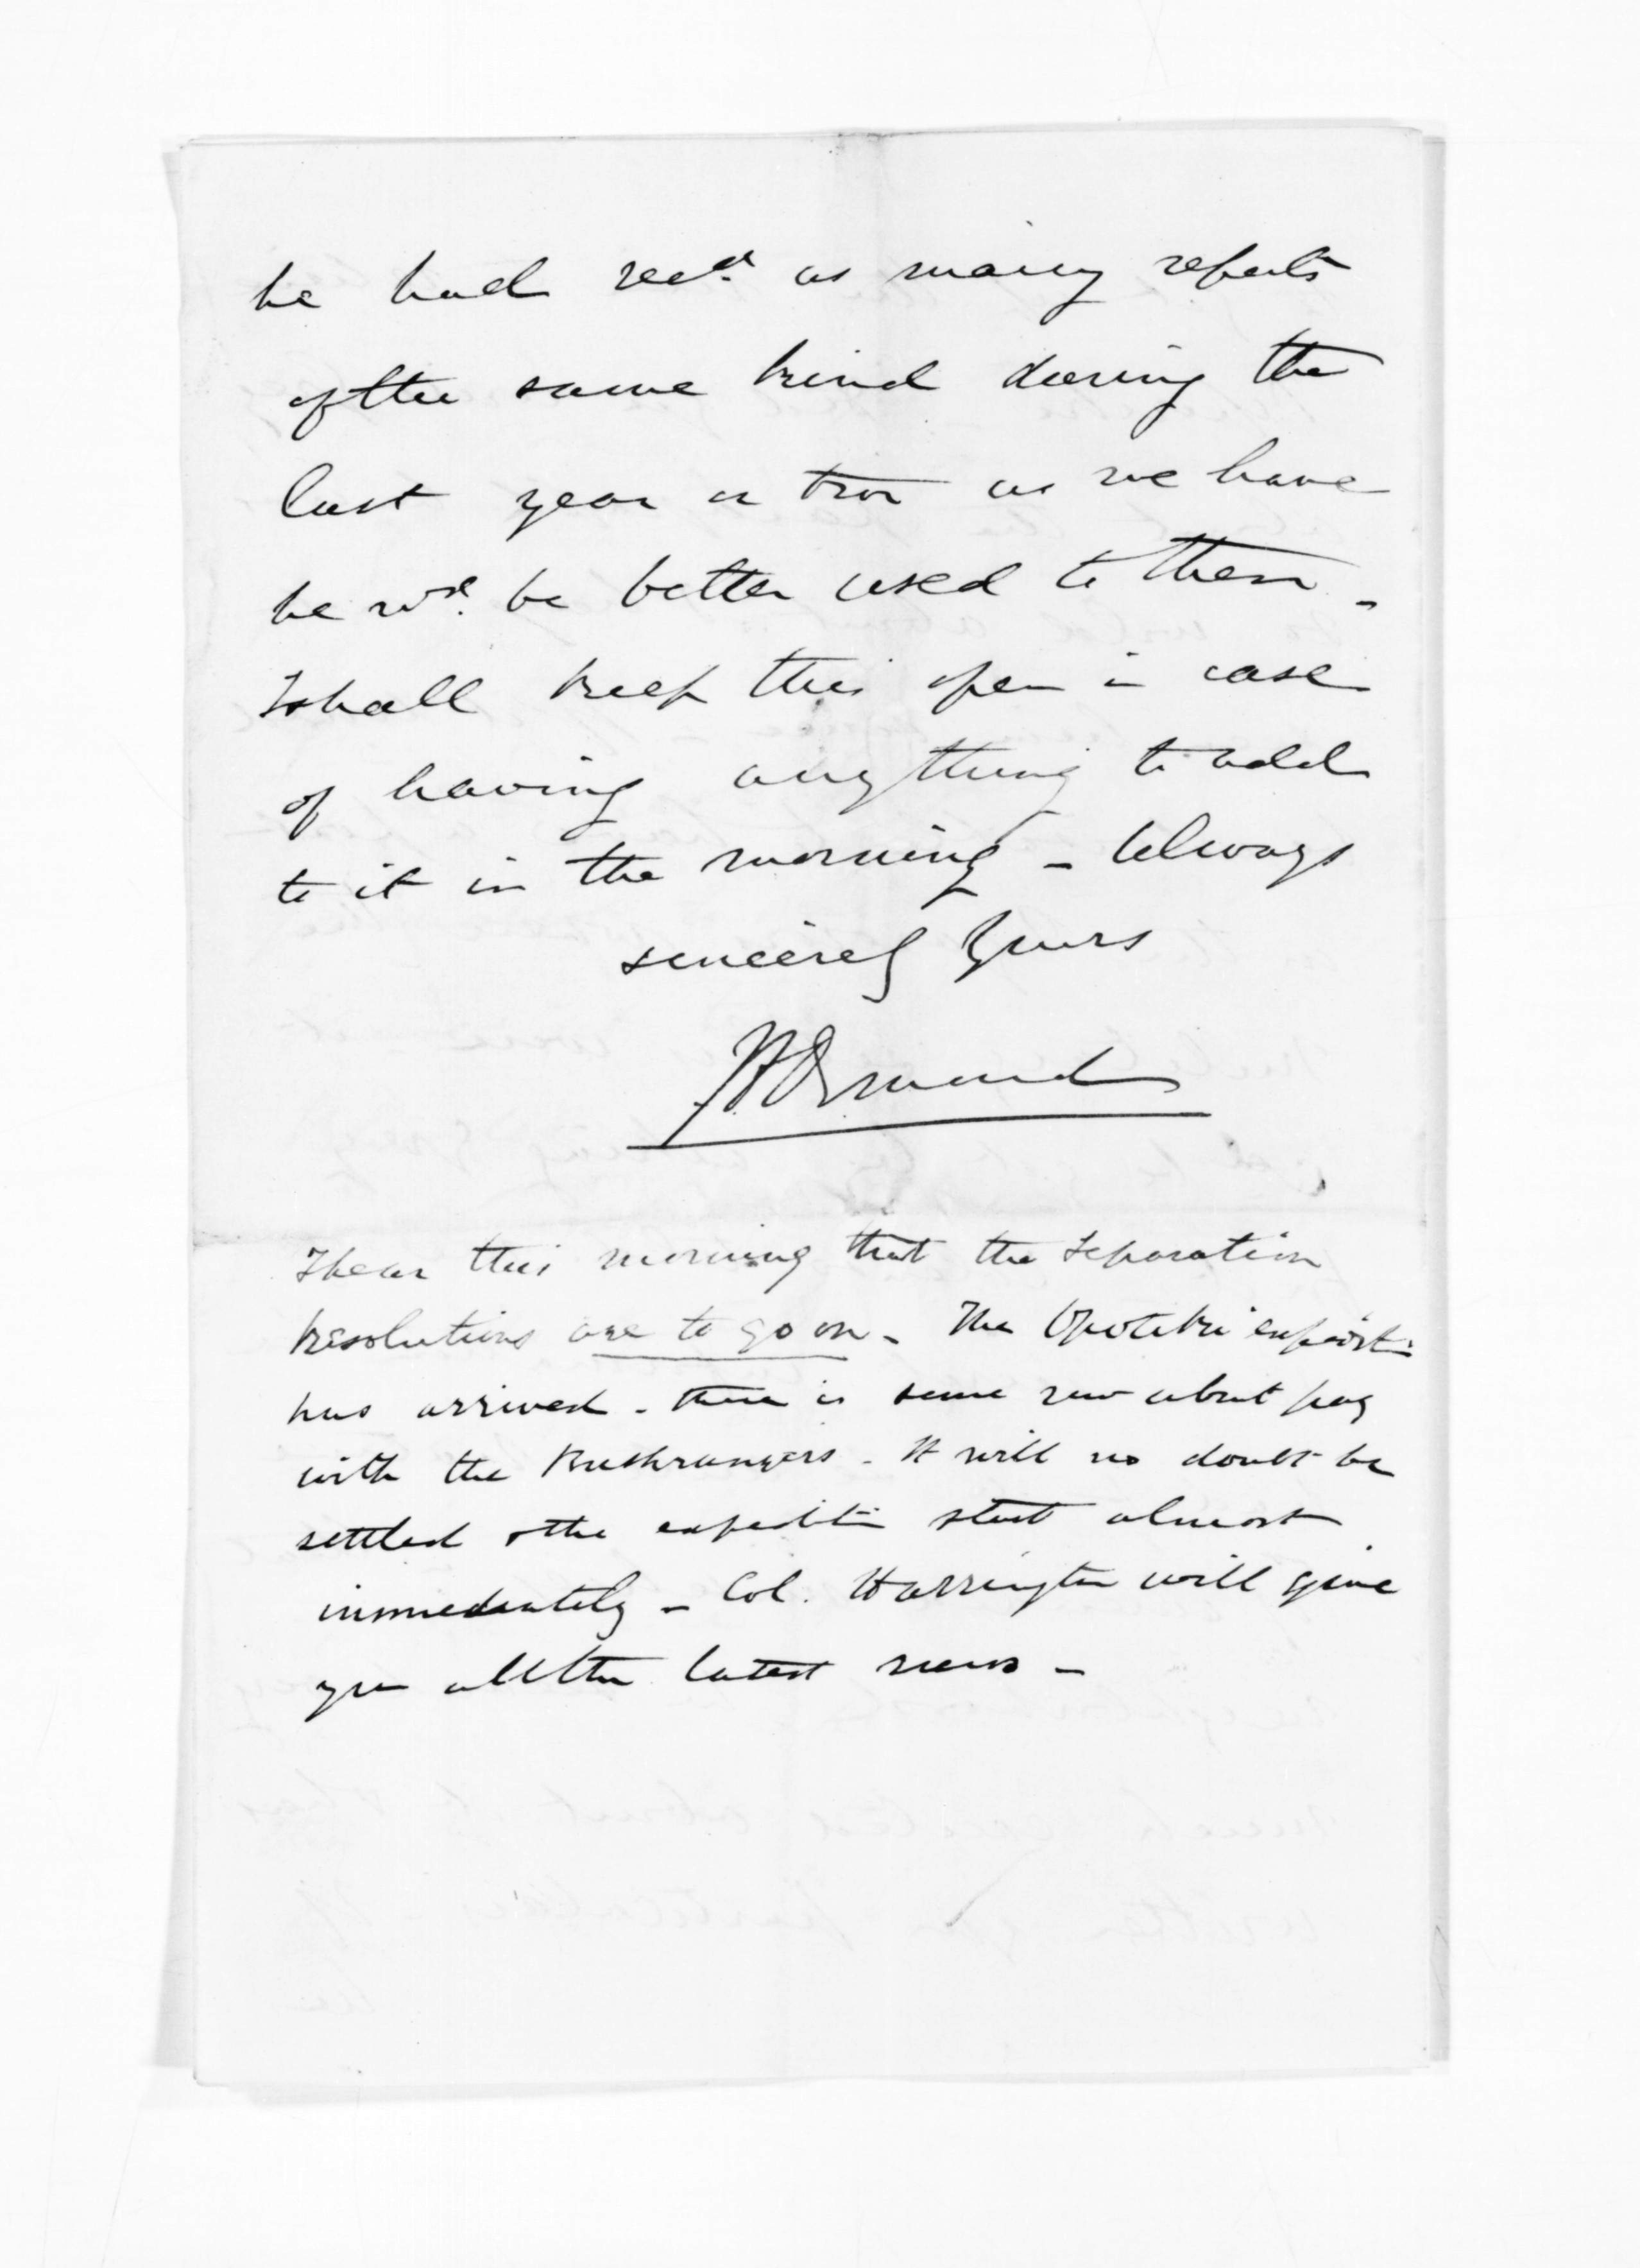 he had recd. as many reports
of the same kind during the
last year or two as we have
he wd. be better used to them -
I shall keep this open in case
of having anything to add
to it in the morning - Always
sincerely Yours
J D Ormond
I hear this morning that the Separation
resolutions are to go on - The Opotiki expedit:
has arrived - there is some row about pay
with the Bushrangers - It will no doubt be
settled & the expeditn start almost
immediately - Col. Harrington will give
you all the latest news -